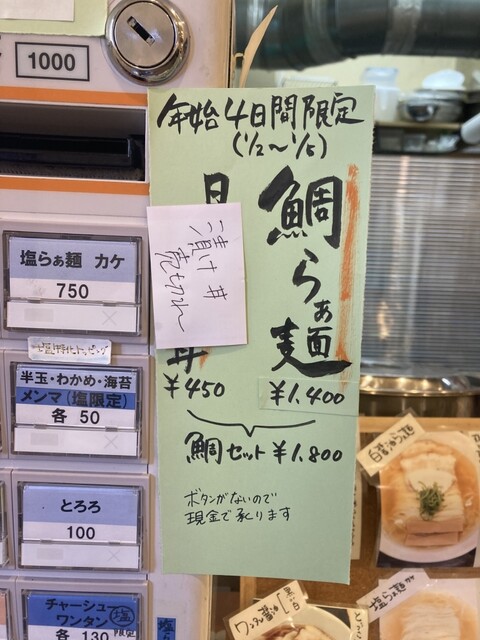 1000
年始4日間限定
(1/2〜1/5)
鯛らぁ麺
¥1,400
日
丼
¥450
ごま漬け丼
売切れ
鯛セット ¥1,800
ボタンがないので
現金で承ります
塩らぁ麺 カケ
750
塩限定トッピング
半玉・わかめ・海苔
メンマ(塩限定)
各 50
とろろ
100
チャーシュー
ワンタン
塩
限定
各 130
白醤油らぁ麺
塩らぁ麺
ワンタン醤油